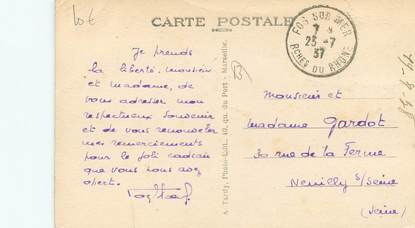 10€
CARTE POSTALE
FOS SUR MER
7
23-7
37
BCHES DU RHÔNE
Je prends
la liberté, monsieur
et madame, de
vous adresser mon
respectueux souvenir
et de vous renouveler
mes remerciements
pour le joli cadeau
que vous nous avez
offert.
A. Tardy, Photo-Édit., 40, qu. du Port - Marseille.
Monsieur et
madame Gardot
30 rue de la Ferme
Neuilly s/Seine
(Seine)